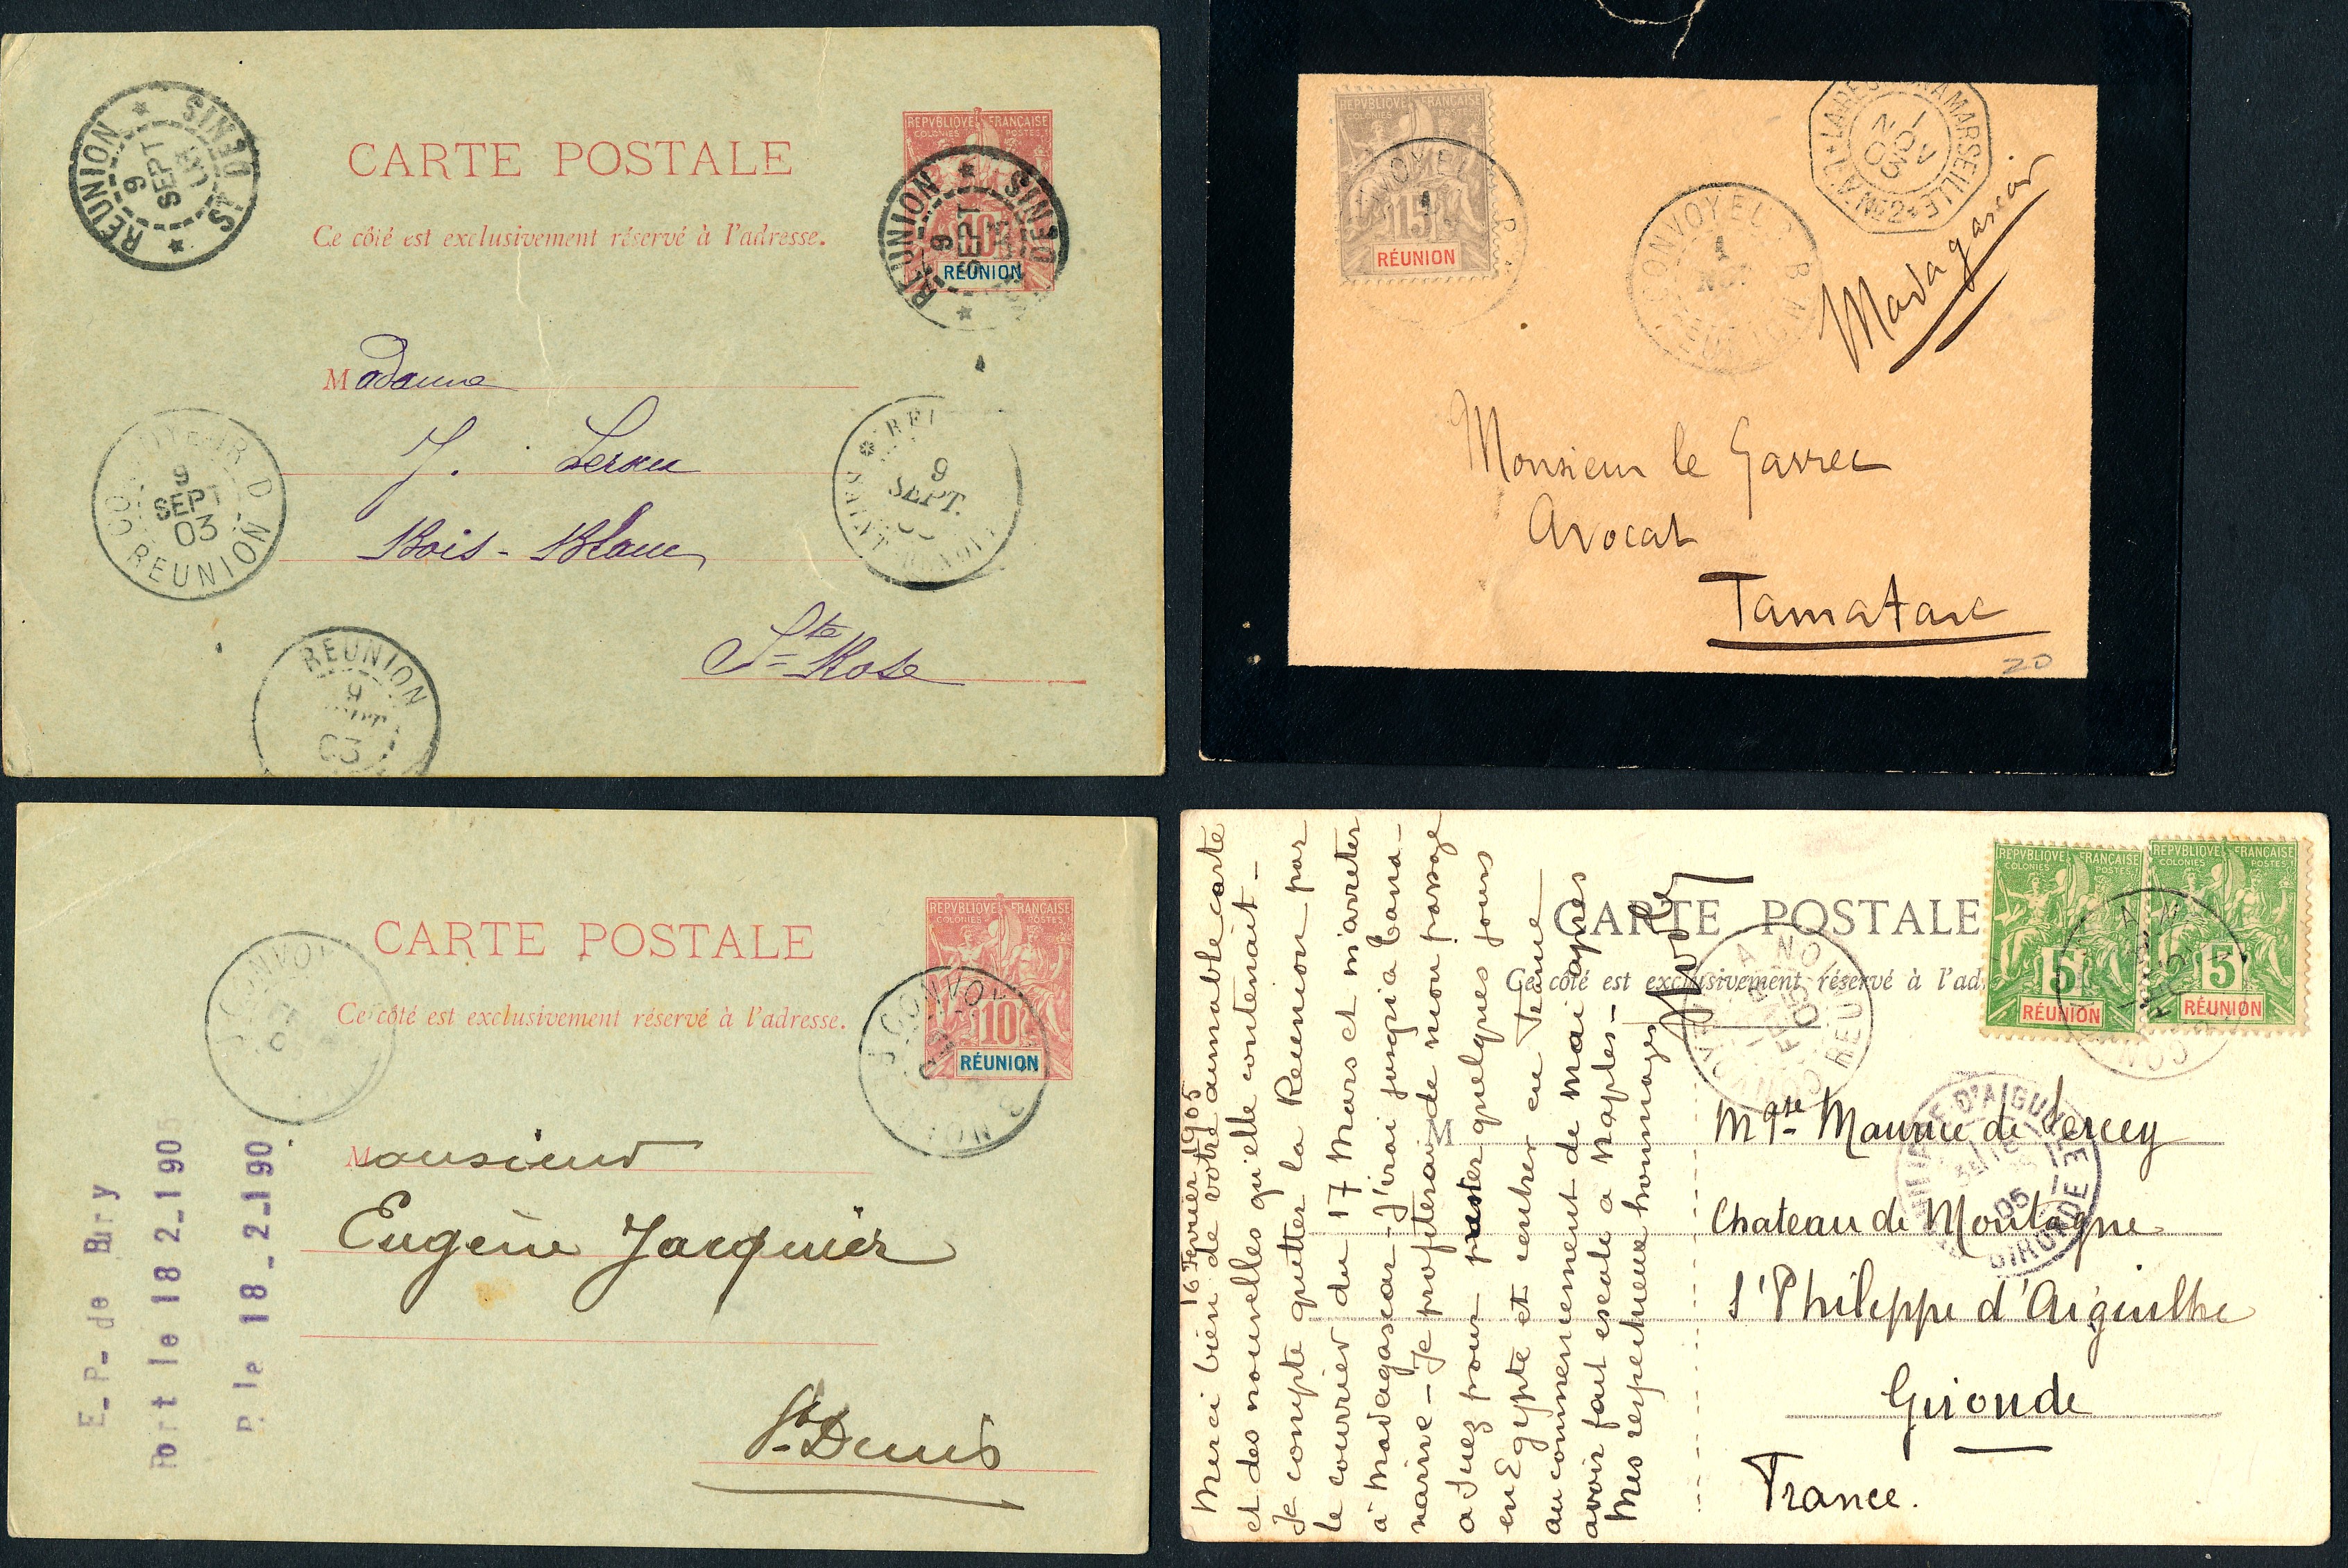 RÉUNION
ST DENIS
9
SEPT
CARTE POSTALE
Ce côté est exclusivement réservé à l'adresse.
REPVBLIQVE FRANÇAISE
COLONIES POSTES
10
RÉUNION
RÉUNION
ST DENIS
9
SEPT
Madame
J. Leroux
Bois-Blanc
Ste Rose
D
9
SEPT
03
REUNION
9
SEPT.
REUNION
9
03
REPVBLIQVE FRANÇAISE
COLONIES POSTES
15
RÉUNION
CONVOYEUR B
1
REUNION
MARSEILLE
L.A. No 2
1
NOV
03
Madagascar
Monsieur le Gavrec
Avocat
Tamatave
20
CARTE POSTALE
Ce côté est exclusivement réservé à l'adresse.
REPVBLIQVE FRANÇAISE
COLONIES POSTES
10
RÉUNION
CONVOY
CONVOY
Monsieur
Eugène Jacquier
St Denis
E_P_ de Bury
Port le 18 2_1905
P. le 18_2_190
16 Fevrier 1905
Merci bien de votre aimable carte
et des nouvelles qu'elle contenait_
Je compte quitter la Reunion par
le courrier du 17 Mars et m'arreter
à Madagascar_ J'irai jusqu'a Tana-
narive_ Je profiterai de mon passage
a Suez pour passer quelques jours
en Egypte et rentrer en France
au commencement de Mai apres
avoir fait escale a Naples_
Mes respectueux hommages
CARTE POSTALE
Ce côté est exclusivement réservé à l'ad
REPVBLIQVE FRANÇAISE
COLONIES POSTES
5
RÉUNION
REPVBLIQVE FRANÇAISE
COLONIES POSTES
5
RÉUNION
M
Mqse Maurice de Sercey
Chateau de Montagne
St Philippe d'Aiguilhe
Gironde
France.
D'AIGUILLE
05
GIRONDE